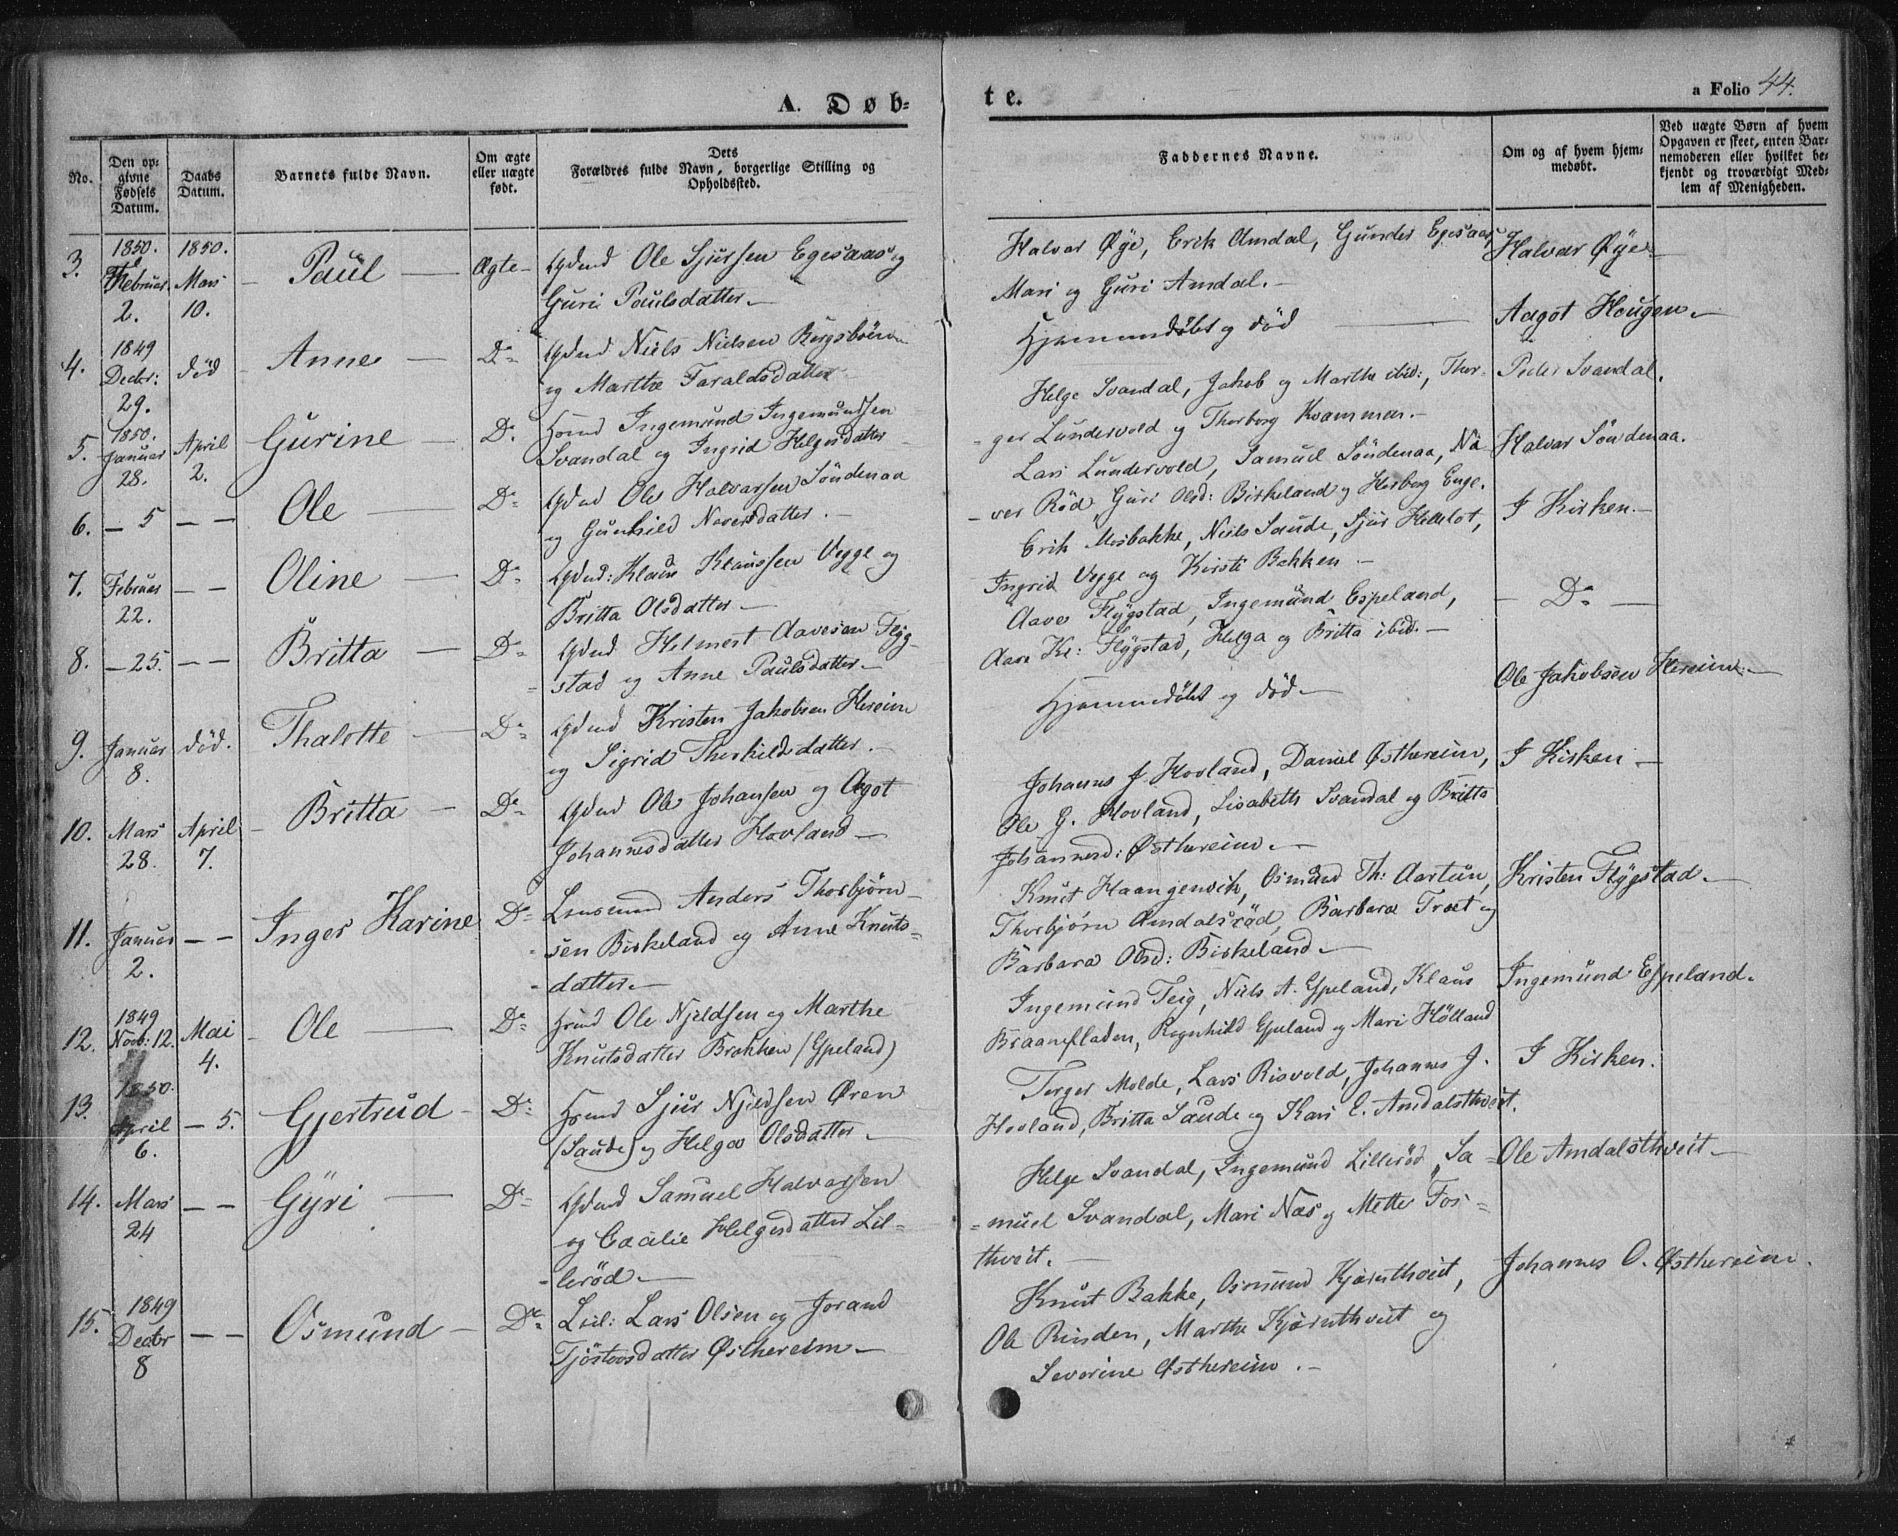 A. Døb-
te.
a Folio 44.
No.
Den op-
givne
Fødsels
Datum.
Daabs
Datum.
Barnets fulde Navn.
Om ægte
eller uægte
født.
Dets
Forældres fulde Navn, borgerlige Stilling og
Opholdssted.
Faddernes Navne.
Om og af hvem hjem-
medøbt.
Ved uægte Børn af hvem
Opgaven er skeet, enten Bar-
nemoderen eller hvilket be-
kjendt og troværdigt Med-
lem af Menigheden.
3. 1850. Februar 2. 1850. Mars 10. Paul Ægte
Ole Sjursen Egesaas og
Guri Paulsdatter.
Halvar Øye, Erik Amdal, Gunder Egesaas,
Mari og Guri Amdal.
Halvar Øye
4. 1849 Decbr: 29. død Anne Do
Niels Nielsen
og Marthe Taraldsdatter
Hjemmedøbt og død
Aagot Hougen.
5. 1850. Januar 28. April 2. Gurine Do
Hmd Ingemund Ingemundsen
Svandal og Ingrid Helgesdatter
Helge Svandal, Jakob og Marthe ibid:, Thor-
ger Lundevold og Thorborg Kvammen.
Peder Svandal.
6. - 5 - - Ole Do
Ole Halvarsen Söndenaa
og Gunhild Naversdatter.
Lars Lundervold, Samuel Söndenaa, Na-
ver Röd, Guri Olsd: Birkeland og Herborg Enge.
Halvar Söndenaa.
7. Februar 22. - - Oline Do
Klaus Klaussen Vegge og
Britta Olsdatter
Erik Mosbakke, Niels Saude, Sjur Helleslot,
Ingrid Vegge og Kirsti Bakken
I Kirken.
8. - 25. - - Britta Do
Helmert Aavesen Flyg-
stad og Anne Paulsdatter
Aave Flÿgstad, Ingemund Espeland,
Aave Kl: Flÿgstad, Helga og Britta ibid.
Do
9. Januar 8. død. Thalette Do
Kristen Jakobsen Hereim
og Sigrid Therkildsdatter.
Hjemmedøbt og død.
Ole Jakobsen Hereim.
10. Mars 28. April 7. Britta Do
Ole Johansen og Agot
Johannesdatter Hovland
Johannes J. Hovland, Daniel Østhereim,
Ole G. Hovland, Lisabeth Svandal og Britta
Johannesd: Østhereim.
I Kirken
11. Januar 2. - - Inger Karine Do
Anders Thorbjørn-
sen Birkeland og Anne Knuts-
datter.
Knut Haangenvik, Osmund Th: Aartun,
Thorbjørn Amdalsrød, Barbara Træt og
Barbara Olsd: Birkeland
Kristen Flÿgstad.
12. 1849 Novb: 12. Mai 4. Ole Do
Hmd Ole Njeldsen og Marthe
Knutsdatter Brakken (Espeland)
Ingemund Teig, Niels A. Espeland, Klaus
Braanefladen, Ragnhild Espeland og Mari Hölland
Ingemund Espeland.
13. 1850. April 6. - 5. Gjertrud Do
Hmd Sjur Njeldsen Øren
(Saude) og Helga Olsdatter
Torger Molde, Lars Risvold, Johannes J.
Hovland, Britta Saude og Kari E. Amdalsthveit.
I Kirken.
14. Mars 24 - - Gÿri Do
Samuel Halvarsen
og Cæcilie Helgesdatter Lil-
lerød
Helge Svandal, Ingemund Lillerød, Sa-
muel Svandal, Mari Næs og Mette Fos-
thveit.
Ole Amdalsthveit
15. 1849 Decbr 8 - - Osmund Do
Lars Olsen og Jorand
Tjöstovsdatter Østhereim
Knut Bakke, Osmund Kjærnthveit,
Ole Rinden, Marthe Kjærnthveit og
Severine Østhereim.
Johannes O. Østhereim.